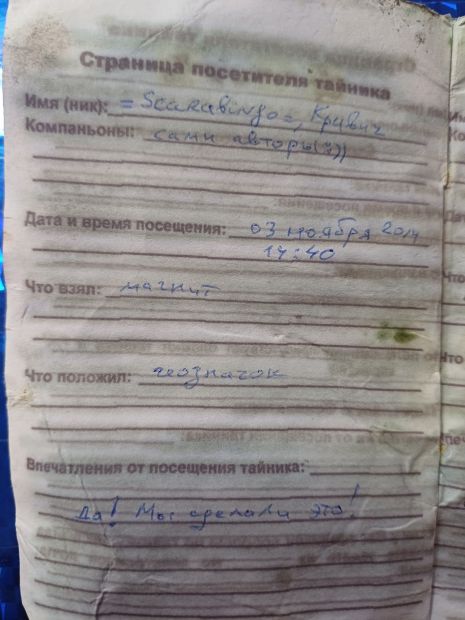 Страница посетителя тайника
Имя (ник): =Scarabingo=, Кривич
Компаньоны: сами авторы(:))
Дата и время посещения: 03 ноября 2014
14:40
Что взял: магнит
Что положил: геозначок
Впечатления от посещения тайника:
Да! Мы сделали это!